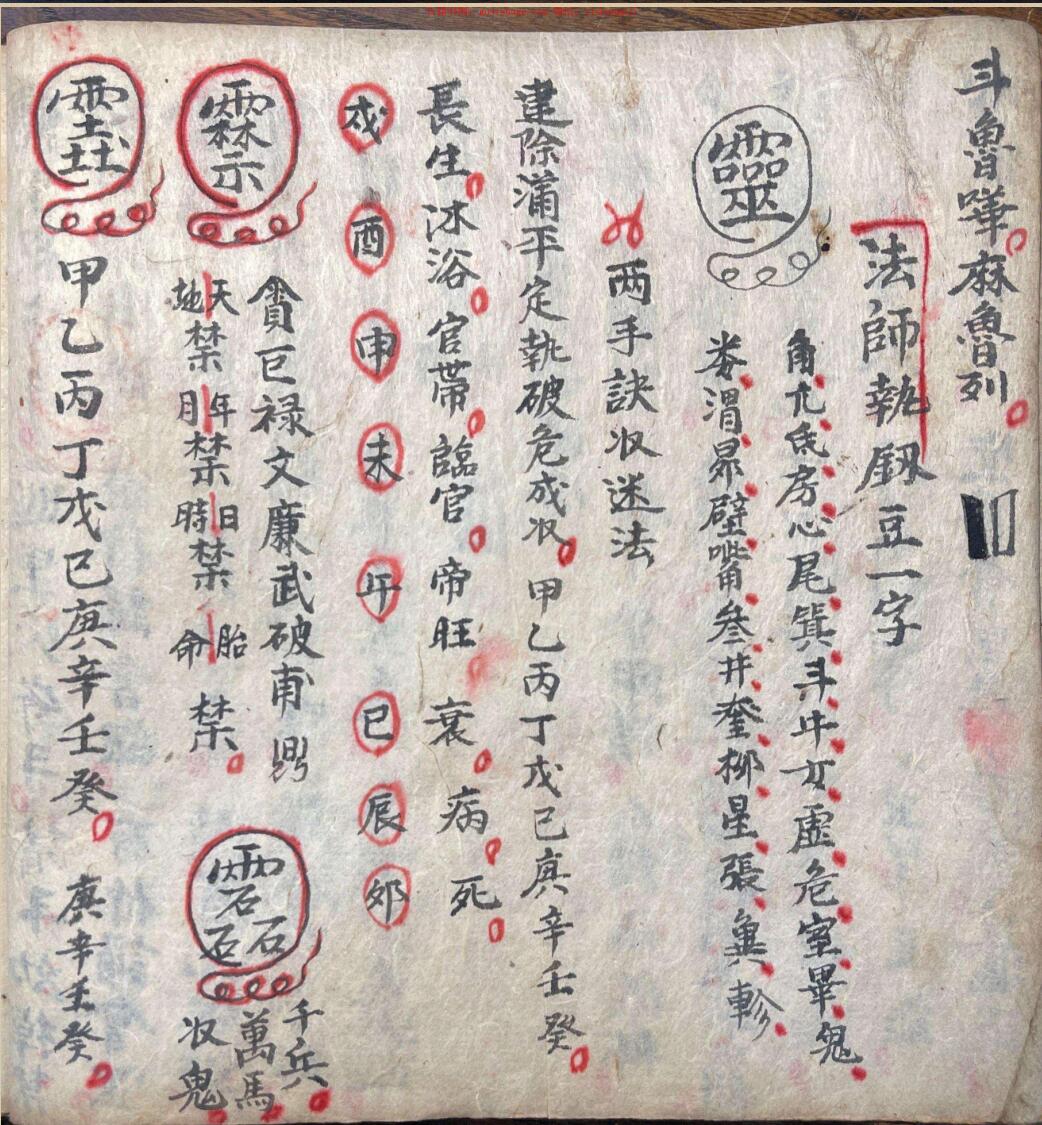 斗魯嘩麻魯列
法師執釼豆一字
角亢氐房心尾箕斗牛女虚危室畢鬼
娄渭昴壁嘴叁井奎柳星張翼軫
靈
两手訣収迷法
建除满平定執破危成収 甲乙丙丁戊己庚辛壬癸
長生沐浴官带臨官帝旺衰病死
戌酉申未午巳辰卯
貪巨禄文廉武破甫
霖示
天地禁年月禁日時禁胎命禁
石石石
千兵
萬馬
収鬼
甲乙丙丁戊己庚辛壬癸 庚辛壬癸